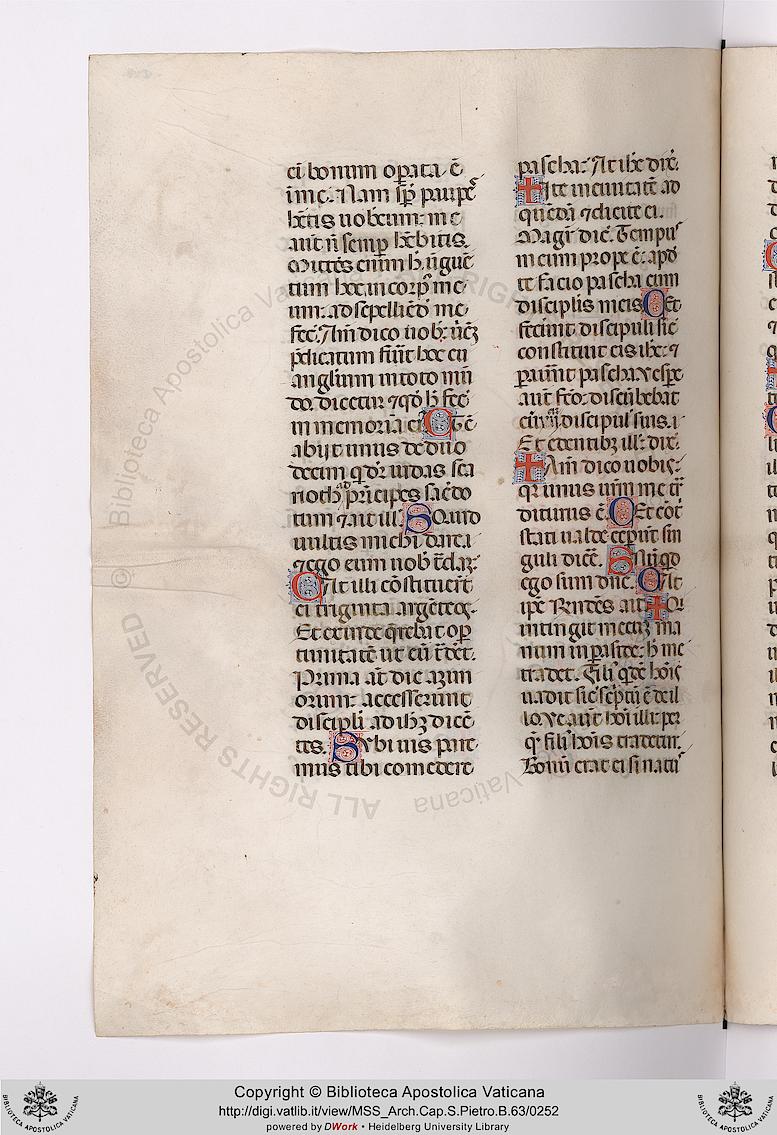 ei bonum opata ē
ī me. Nam sp̄ paupe
hētis uobcum: me
aūt ñ semp hēbitis.
Mittēs enim h̄ ūguē
tum hoc in corp̄ me
um: ad sepelliēd me
fēc. Am̄ dico uob: ūcz
p̄dicatum fu̅it hoc eu
angliūm in toto mū
do. dicetur ⁊ qđ h̄ fēc
in memoriā ei C Tc̄
abijt unus de duo
decim q dr̄ iudas sca
rioth ad p̄ncipes sac̄do
tum ⁊ ait ill. S Quid
uultis michi dare.
⁊ ego eum uob t̄daz:
C At illi cōstituer̄t
ei triginta argēteos.
Et exinde q̄rebat opˀ
tunitatē ut eū t̄det.
Prima aūt die azim
orum: accesserunt
discipli ad ihz dicē
tes. S Vbi uis pare
mus tibi comedere
pascha: At ihc dix̄.
✝ Ite in ciuitatē ad
quēdā ⁊ dicite ei.
Magr̄ dic̄. Tempuˀ
meum prope ē: apđ
te facio pascha cum
disciplis meis C Et
fecerunt discipuli sic̄
constituit eis ihc: ⁊
parau̅nt pascha. Vespe
aut̄ fc̄o: discūbebat
cū xij discipul suis.
Et edentibz ill: dix̄.
✝ Am̄ dico uobis:
qr unus ur̄m me tr̄
diturus ē. C Et cōt
stati ualde ceper̄nt sin
guli dicē. S Nūqđ
ego sum dn̄e. C At
ipe Rn̄dēs ait ✝ Qi
intingit mecuz ma
num in parside: h̄ me
tradet. Filiˀ qdē hoīs
uadit sic̄ sc̄ptū ē de il
lo. Ve aut̄ hoī illi: per
q̄ filiˀ hoīs tradetur.
Bonū erat ei si natuˀ
ALL RIGHTS RESERVED © Biblioteca Apostolica Vaticana
Copyright © Biblioteca Apostolica Vaticana
http://digi.vatlib.it/view/MSS_Arch.Cap.S.Pietro.B.63/0252
powered by DWork • Heidelberg University Library
BIBLIOTECA APOSTOLICA VATICANA
BIBLIOTECA APOSTOLICA VATICANA